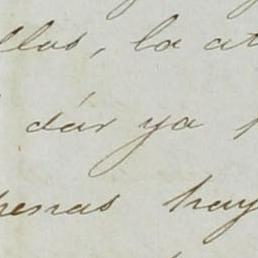 llas, la at
dár ya
penas hay